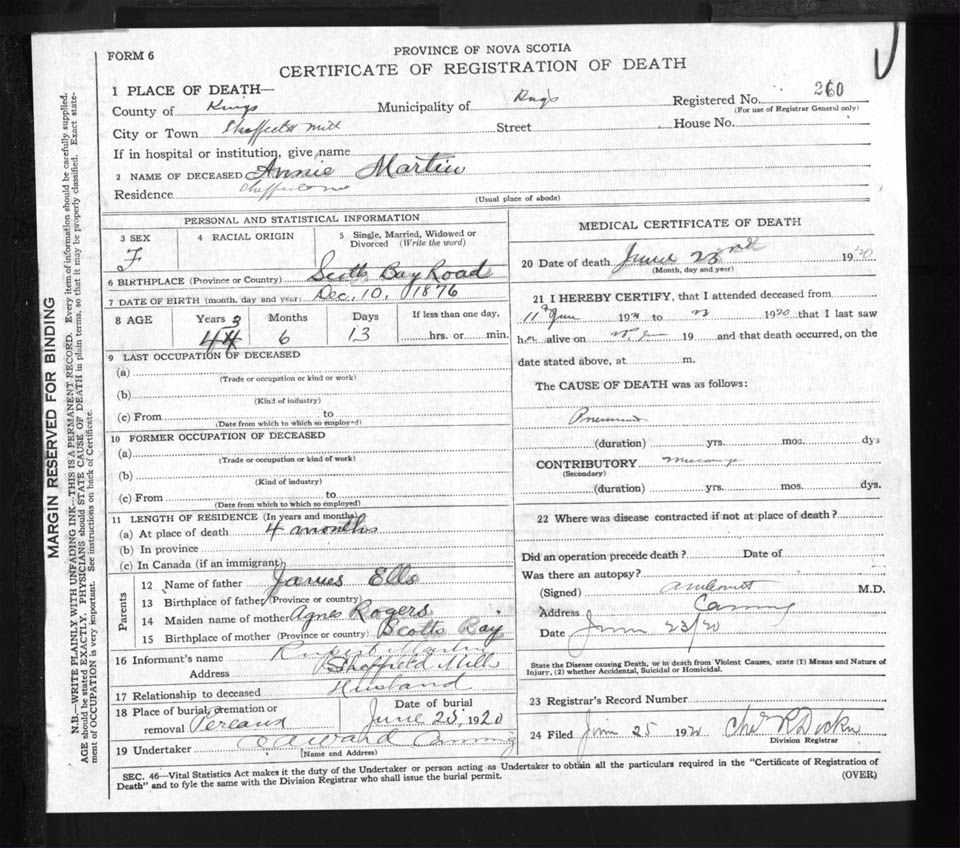 FORM 6
PROVINCE OF NOVA SCOTIA
CERTIFICATE OF REGISTRATION OF DEATH
1 PLACE OF DEATH—
County of Kings Municipality of Kings Registered No. 260
(For use of Registrar General only)
City or Town Sheffield Mill Street House No.
If in hospital or institution, give name
2 NAME OF DECEASED Annie Martin
Residence
(Usual place of abode)
PERSONAL AND STATISTICAL INFORMATION
3 SEX F
4 RACIAL ORIGIN
5 Single, Married, Widowed or Divorced (Write the word)
6 BIRTHPLACE (Province or Country) Scotts Bay Road
7 DATE OF BIRTH (month, day and year) Dec, 10, 1876
8 AGE Years Months Days If less than one day,
6 13 hrs. or min.
9 LAST OCCUPATION OF DECEASED
(a)
(Trade or occupation or kind or work)
(b)
(Kind of industry)
(c) From to
(Date from which to which so employed)
10 FORMER OCCUPATION OF DECEASED
(a)
(Trade or occupation or kind of work)
(b)
(Kind of industry)
(c) From to
(Date from which to which so employed)
11 LENGTH OF RESIDENCE (In years and months)
(a) At place of death 4 months
(b) In province
(c) In Canada (if an immigrant)
Parents
12 Name of father James Ells
13 Birthplace of father (Province or country)
14 Maiden name of mother Agnes Rogers
15 Birthplace of mother (Province or country) Scotts Bay
16 Informant's name Rupert Martin
Address Sheffield Mills
17 Relationship to deceased Husband
18 Place of burial, cremation or removal Pereaux
Date of burial June 25, 1920
19 Undertaker Canning
(Name and Address)
MEDICAL CERTIFICATE OF DEATH
20 Date of death June 23rd 1920
(Month, day and year)
21 I HEREBY CERTIFY, that I attended deceased from
11 June 19 to 1920 that I last saw
her alive on 19 and that death occurred, on the
date stated above, at m.
The CAUSE OF DEATH was as follows:
(duration) yrs. mos. dys
CONTRIBUTORY
(Secondary)
(duration) yrs. mos. dys.
22 Where was disease contracted if not at place of death?
Did an operation precede death? Date of
Was there an autopsy?
(Signed) M.D.
Address Canning
Date June 23/20
State the Disease causing Death, or in death from Violent Causes, state (1) Means and Nature of
Injury, (2) whether Accidental, Suicidal or Homicidal.
23 Registrar's Record Number
24 Filed June 25 192
Division Registrar
SEC. 46—Vital Statistics Act makes it the duty of the Undertaker or person acting as Undertaker to obtain all the particulars required in the "Certificate of Registration of
Death" and to fyle the same with the Division Registrar who shall issue the burial permit. (OVER)
MARGIN RESERVED FOR BINDING
N.B.—WRITE PLAINLY WITH UNFADING INK—THIS IS A PERMANENT RECORD. Every item of information should be carefully supplied.
AGE should be stated EXACTLY. PHYSICIANS should STATE CAUSE OF DEATH in plain terms, so that it may be properly classified. Exact state-
ment of OCCUPATION is very important. See instructions on back of Certificate.